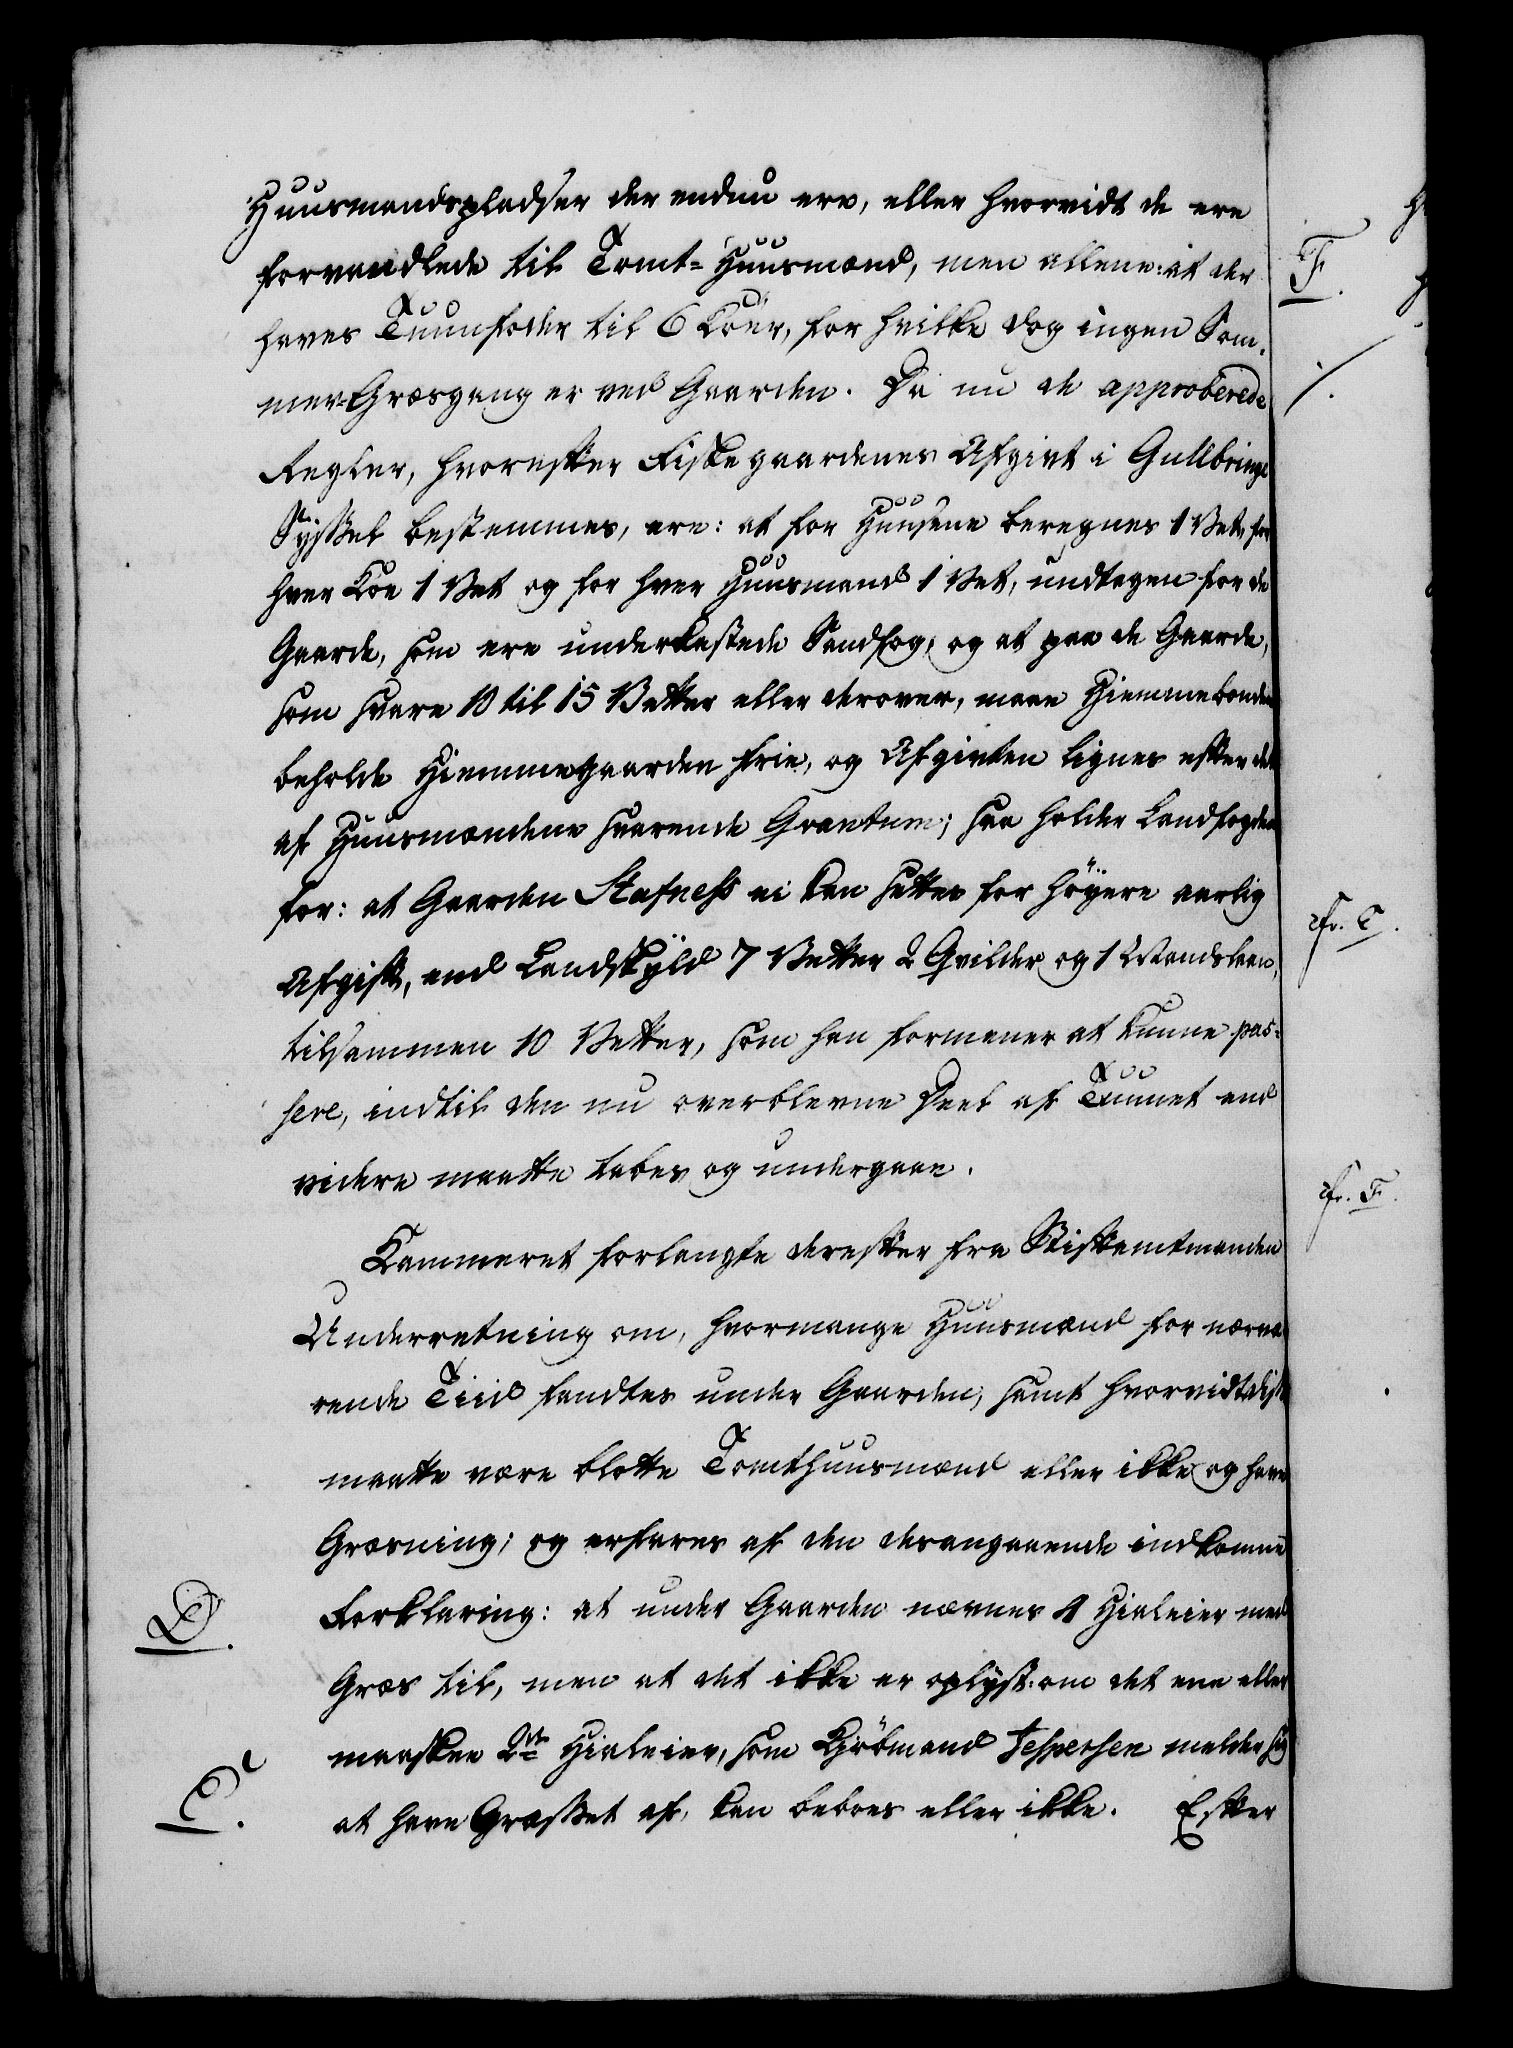 Huusmandspladser der endnu ere, eller hvorvidt de ere
forvandlede til Tomt-Huusmænd, men allene: at der
haves Tuunfoder til 6 Köer, for hvilke dog ingen Som-
mer-Græsgang er ved Gaarden. Da nu de approberede
Regler, hvorefter Fiskegaardenes Afgivt i Gullbringe
Sysßel bestemmes, ere: at for Huusene beregnes 1 Vet, for
hver Koe 1 Vet og for hver Huusmand 1 Vet, undtagen for de
Gaarde, som ere underkastede Sandfog, og at paa de Gaarde,
som svare 10 til 15 Vetter eller derover, maae Hiemmebonden
beholde Hiemmegaarden frie, og Afgivten lignes efter det
af Huusmændene svarende Qvantum; saa holder Landfogden
for: at Gaarden Stafness ei kan sættes for höyere aarlig
Afgift, end Landskyld 7 Vetter 2 Qvilder og 1 Mandslaan,
tilsammen 10 Vetter, som han formener at kunne pas-
sere, indtil den nu overblevne Deel af Tuunet end
videre maatte tabes og undergaae.
Kammeret forlangte derefter fra Stiftamtmanden
Underretning om, hvormange Huusmænd for nærvæ
rende Tiid fandtes under Gaarden, samt hvorvidt disse
maatte være blotte Tomthuusmænd eller ikke og have
Græsning; og erfares af den desangaaende indkomne
D.
Forklaring: at under Gaarden nævnes 4 Hialeier med
Græs til, men at det ikke er oplyst: om det ene eller
E.
maaskee 2de Hialeier, som Kjöbmand Jespersen melder sig
at have Græsset af, kan beboes eller ikke. Efter
F.
cfr. C.
cfr. F.